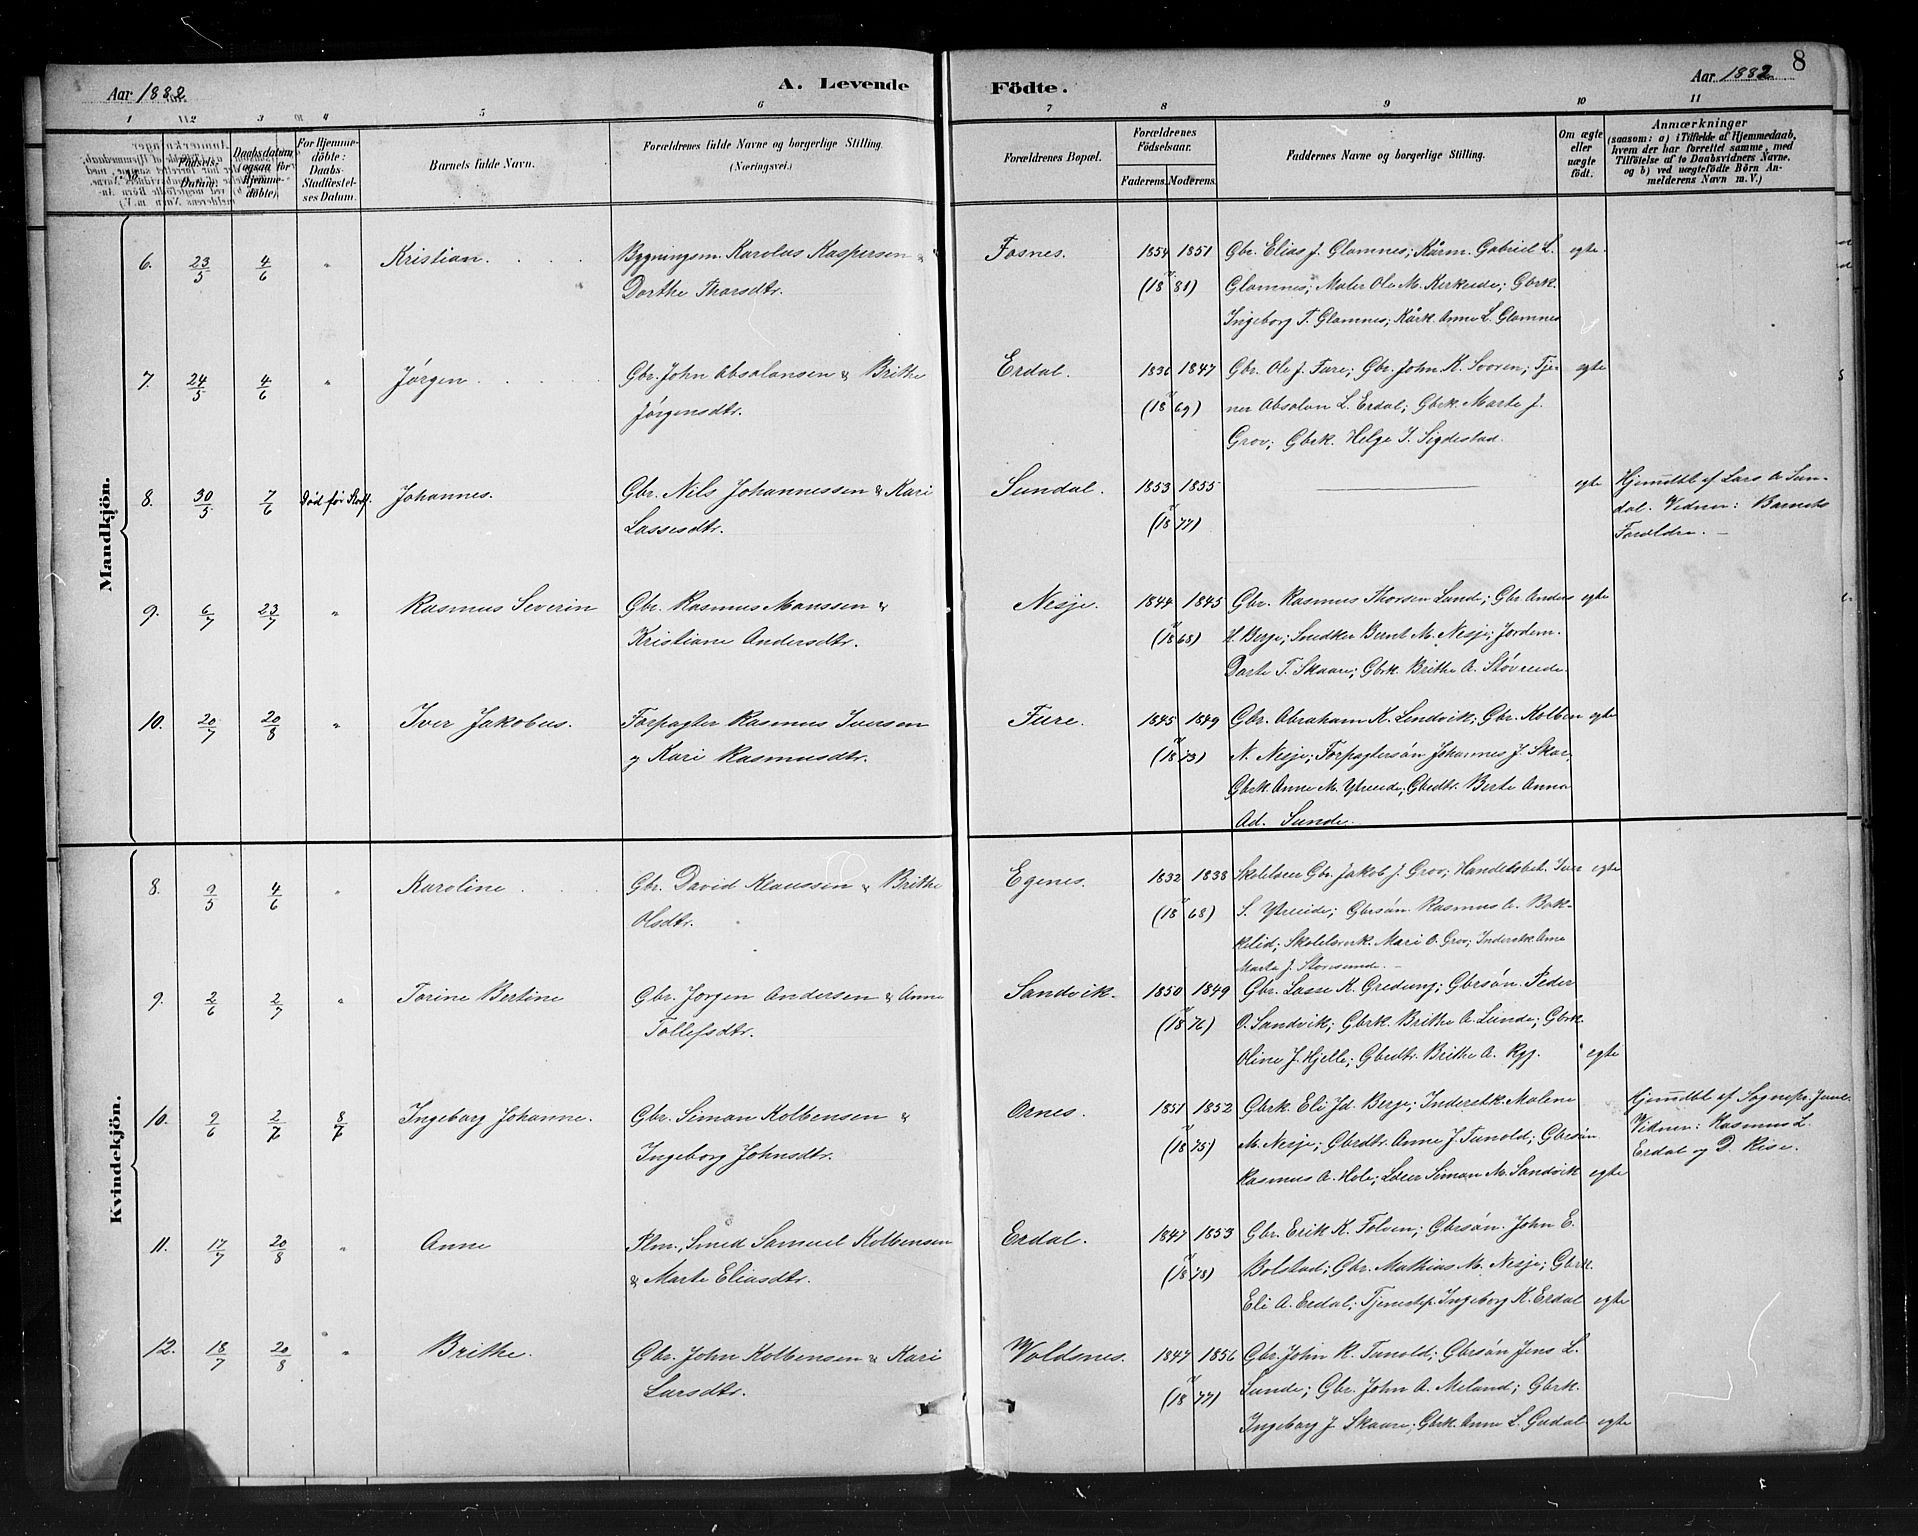 8
Aar 1882
A. Levende
Födte.
Aar 1882
1 2 3 4 5 6 7 8 9 10 11
No.
Födsels-
Datum.
Daabsdatum
(ogsaa for
Hjemme-
döbte).
For Hjemme-
döbte:
Daabs-
Stadfæstel-
ses Datum.
Barnets fulde Navn.
Forældrenes fulde Navne og borgerlige Stilling.
(Næringsvei.)
Forældrenes Bopæl.
Forældrenes
Födselsaar.
Faderens. Moderens.
Faddernes Navne og borgerlige Stilling.
Om ægte
eller
uægte
födt.
Anmærkninger
(saasom: a) i Tilfælde af Hjemmedaab,
hvem der har forrettet samme, med
Tilföielse af to Daabsvidners Navne,
og b) ved uægtefödte Börn An-
melderens Navn m. V.)
Mandkjön.
6. 23/5 4/6 " Kristian. Bygningsm. Karolus Kaspersen &
Dorthe Thorsdtr.
Fosnes. 1854 1851
(18 81)
Gbr. Elias J. Glamnes; Kårm. Gabriel L.
Glamnes; Maler Ole M. Kerkeide; Gbrk.
Ingeborg T. Glamnes; Kårk. Anne L. Glamnes
egte
7. 24/5 4/6 " Jørgen Gbr. John Absalonsen & Brithe
Jørgensdtr.
Erdal. 1836 1847
(18 69)
Gbr. Ole J. Fure; Gbr. John K. Sooren; Tje-
ner Absolon L. Erdal; Gbrk. Marte J.
Grov; Gbrk. Helge I. Sigdestad.
egte
8. 30/5 7/6 Død før Stadf. Johannes. Gbr. Nils Johannessen & Kari
Lassesdtr.
Sundal. 1853 1855
(18 77)
egte
Hjemmdbt af Lars A. Sun-
dal. Vidner: Barnets
Forældre. —
9. 6/7 23/7 " Rasmus Severin Gbr. Rasmus Monssen &
Kristiane Andersdtr.
Nesje. 1844 1845
(18 68)
Gbr. Rasmus Thorsen Lunde; Gbr Anders
H. Berje; Snedker Bernt M. Nesje; Jordem.
Dorte T. Skaare; Gbrk. Brithe A. Støvreide.
egte
10. 20/7 20/8 " Iver Jakobus. Forpagter Rasmus Iversen
og Kari Rasmusdtr.
Fure. 1845 1849
(18 73)
Gbr. Abraham K. Lendvik; Gbr. Kolben
N. Nesje; Forpagtersøn Johannes J. Skar,
Gbrk. Anne M. Ytreeide; Gbrdtr. Berte Anna
Ad. Sunde.
egte
Kvindekjön.
8. 9/5 4/6 " Karoline Gbr. David Klaussen & Brithe
Olsdtr.
Egenes. 1832 1838
(18 68)
Skolelærer Gbr. Jakob J. Grov; Handelsbet. Iver
S. Ytreeide; Gbrsøn. Rasmus A. Bok-
kelid; Skolelærerk. Mari O. Grov; Inderstk. Anne
Marta J. Storesunde. —
egte
9. 2/6 2/7 " Torine Bertine Gbr. Jørgen Andersen & Anne
Tollefsdtr.
Sandvik. 1850 1849
(18 76)
Gbr. Lasse K. Gredung; Gbrsøn. Peder
O. Sandvik; Gbrk. Brithe A. Lunde; Gbrk.
Oline J. Hjelle; Gbrdtr. Brithe A. Ryg.
egte
10. 9/6 2/7 8/7 Ingeborg Johanne. Gbr. Simon Kolbensen &
Ingeborg Johnsdtr.
Ornes. 1851 1852
(18 75)
Gbrk. Eli Jd. Berje; Inderstk. Malene
M. Nesje; Gbrdtr. Anne J. Tunold; Gbrsøn
Rasmus A. Hole; Lærer Simon M. Sandvik
egte
Hjemmdbt af Sognepr.
Vidner: Rasmus L.
Erdal og D. Rise.
11. 17/7 20/8 " Anne Plm., Smed Samuel Kolbensen
& Marte Eliasdtr.
Erdal. 1847 1853
(18 78)
Gbr. Erik K. Tolven; Gbrsøn. John E.
Bolstad; Gbr. Mathias M. Nesje; Gbrk.
Eli A. Erdal; Tjenestep. Ingeborg K. Erdal
egte
12. 18/7 20/8 " Brithe. Gbr. John Kolbensen & Kari
Larsdtr.
Woldsnes. 1847 1856
(18 77)
Gbr. John R. Tunold; Gbrsøn Jens L.
Sunde; Gbr. John A. Meland; Gbrk.
Ingeborg J. Skaare; Gbrk. Anne L. Gudal
egte